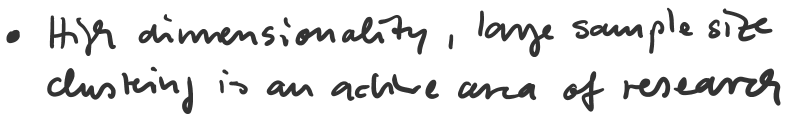 • High dimensionality, large sample size
clustering is an active area of research